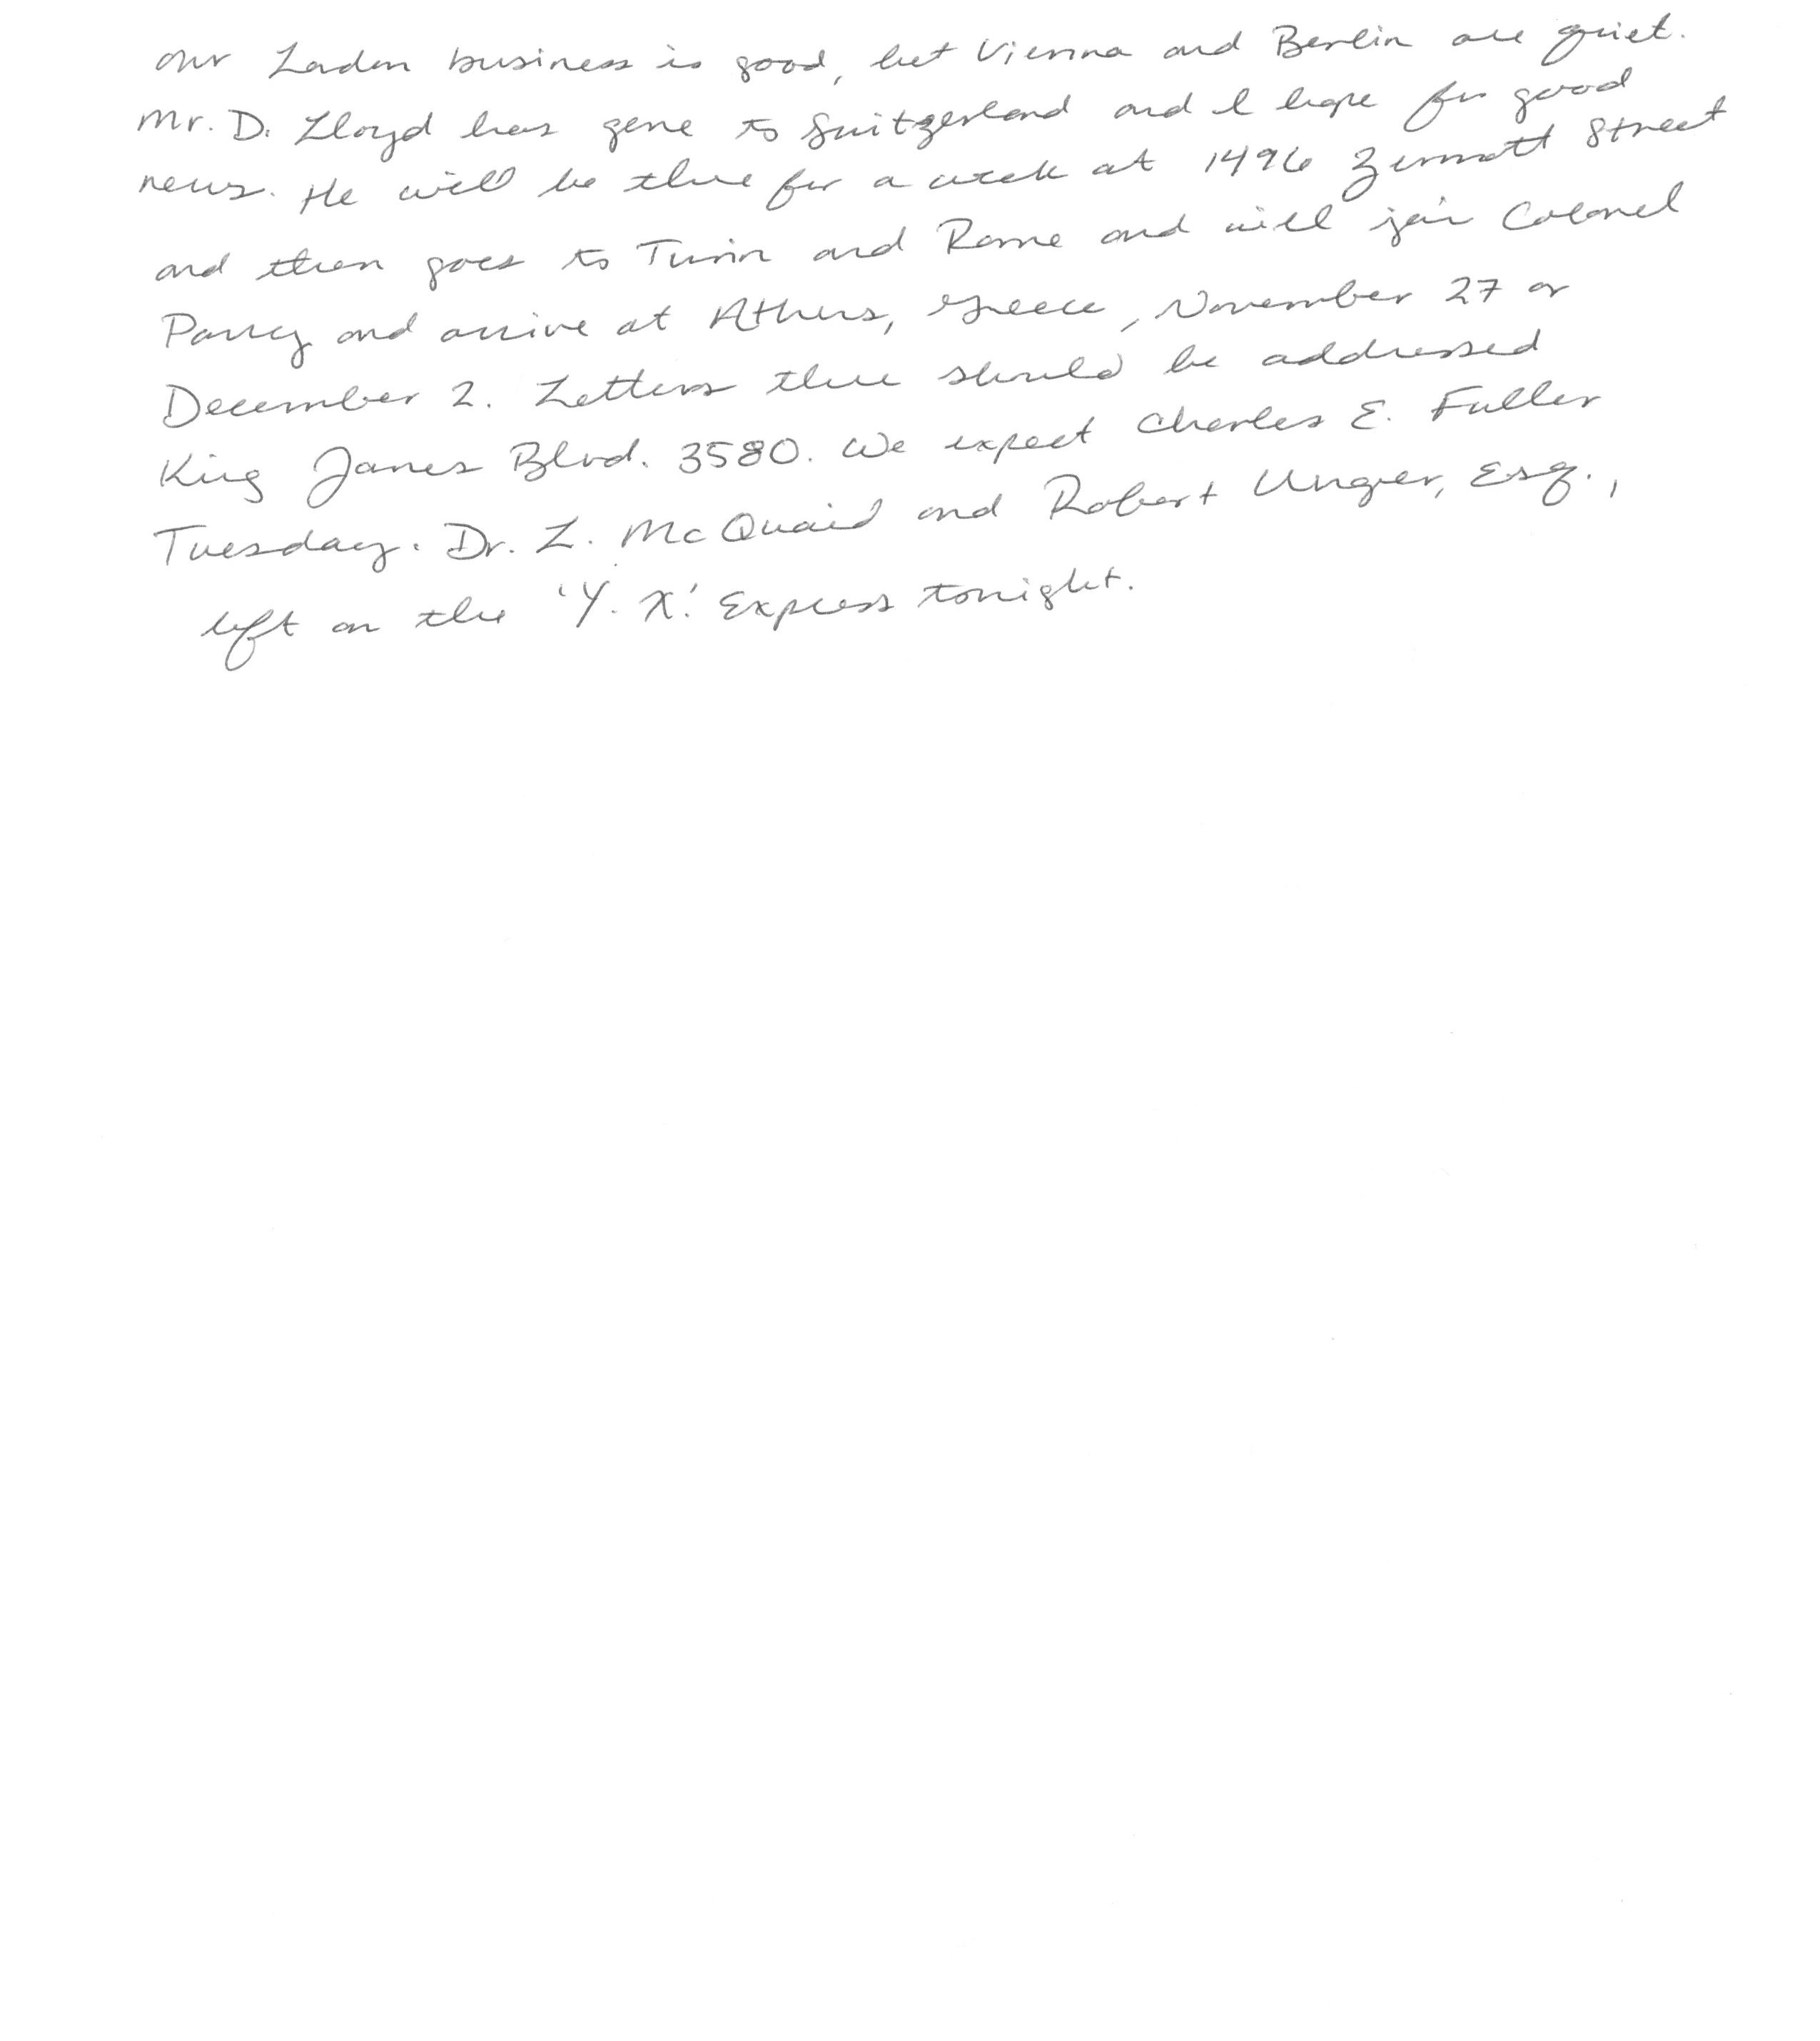 Our London business is good, but Vienna and Berlin are quiet.
Mr. D. Lloyd has gone to Switzerland and I hope for good
news. He will be there for a week at 1496 Zermott Street
and then goes to Turin and Rome and will join Colonel
Parry and arrive at Athens, Greece, November 27 or
December 2. Letters there should be addressed
King James Blvd. 3580. We expect Charles E. Fuller
Tuesday. Dr. L. McQuaid and Robert Unger, Esq.,
left on the 'Y. X.' Express tonight.